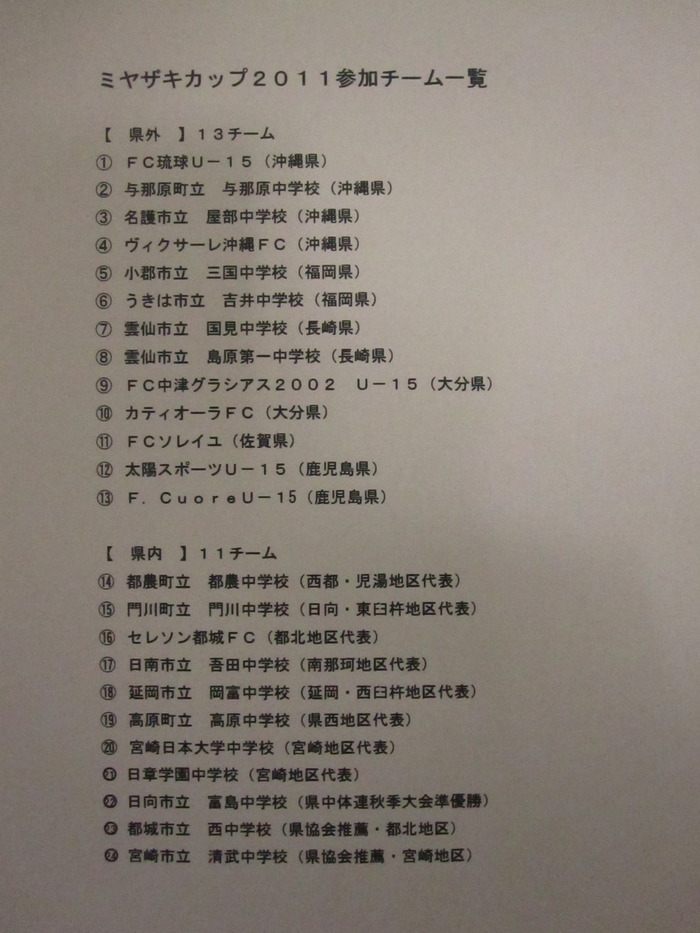 ミヤザキカップ２０１１参加チーム一覧
【　県外　】１３チーム
① ＦＣ琉球Ｕ－１５（沖縄県）
② 与那原町立　与那原中学校（沖縄県）
③ 名護市立　屋部中学校（沖縄県）
④ ヴィクサーレ沖縄ＦＣ（沖縄県）
⑤ 小郡市立　三国中学校（福岡県）
⑥ うきは市立　吉井中学校（福岡県）
⑦ 雲仙市立　国見中学校（長崎県）
⑧ 雲仙市立　島原第一中学校（長崎県）
⑨ ＦＣ中津グラシアス２００２　Ｕ－１５（大分県）
⑩ カティオーラＦＣ（大分県）
⑪ ＦＣソレイユ（佐賀県）
⑫ 太陽スポーツＵ－１５（鹿児島県）
⑬ Ｆ．ＣｕｏｒｅＵ－15（鹿児島県）
【　県内　】１１チーム
⑭ 都農町立　都農中学校（西都・児湯地区代表）
⑮ 門川町立　門川中学校（日向・東臼杵地区代表）
⑯ セレソン都城ＦＣ（都北地区代表）
⑰ 日南市立　吾田中学校（南那珂地区代表）
⑱ 延岡市立　岡富中学校（延岡・西臼杵地区代表）
⑲ 高原町立　高原中学校（県西地区代表）
⑳ 宮崎日本大学中学校（宮崎地区代表）
㉑ 日章学園中学校（宮崎地区代表）
㉒ 日向市立　富島中学校（県中体連秋季大会準優勝）
㉓ 都城市立　西中学校（県協会推薦・都北地区）
㉔ 宮崎市立　清武中学校（県協会推薦・宮崎地区）